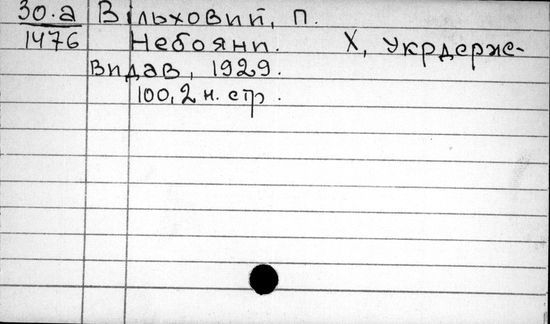 30.а Вільховий, П.
1476 Небояни. Х, Укрдерже-
Видав, 1929.
100, 2 н. стр.